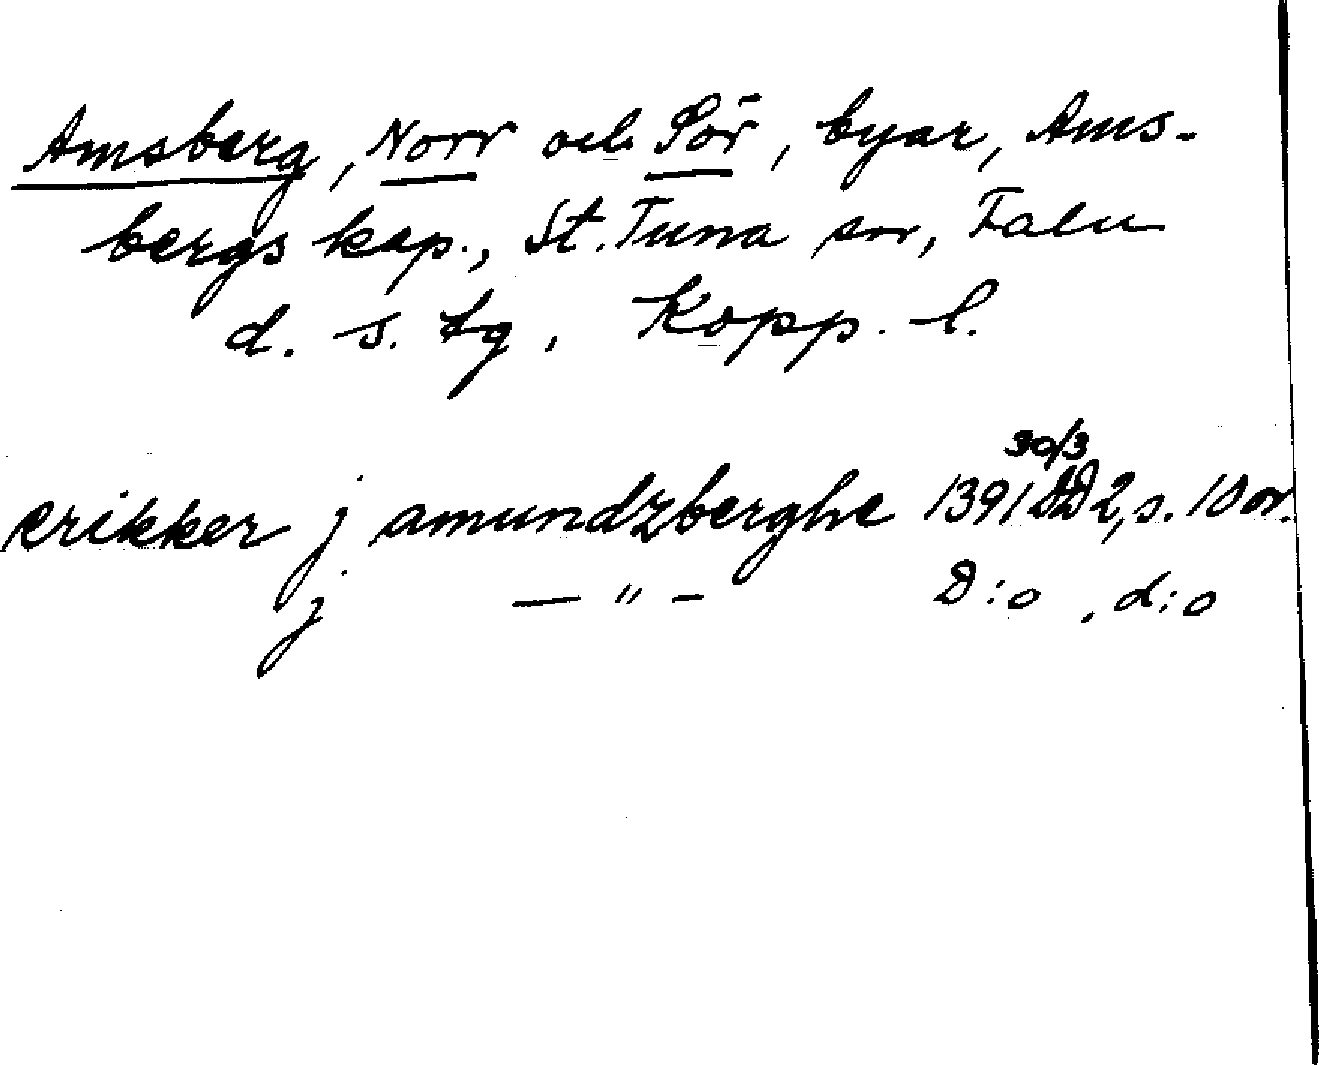 Amsberg, Norr och Sör, byar, Ams-
bergs kap., St. Tuna sn, Falu
d. s. tg, Kopp. l.
30/3
erikker j amundzberghe 1391 DD 2, s. 10 or.
j — " — D:o, d:o